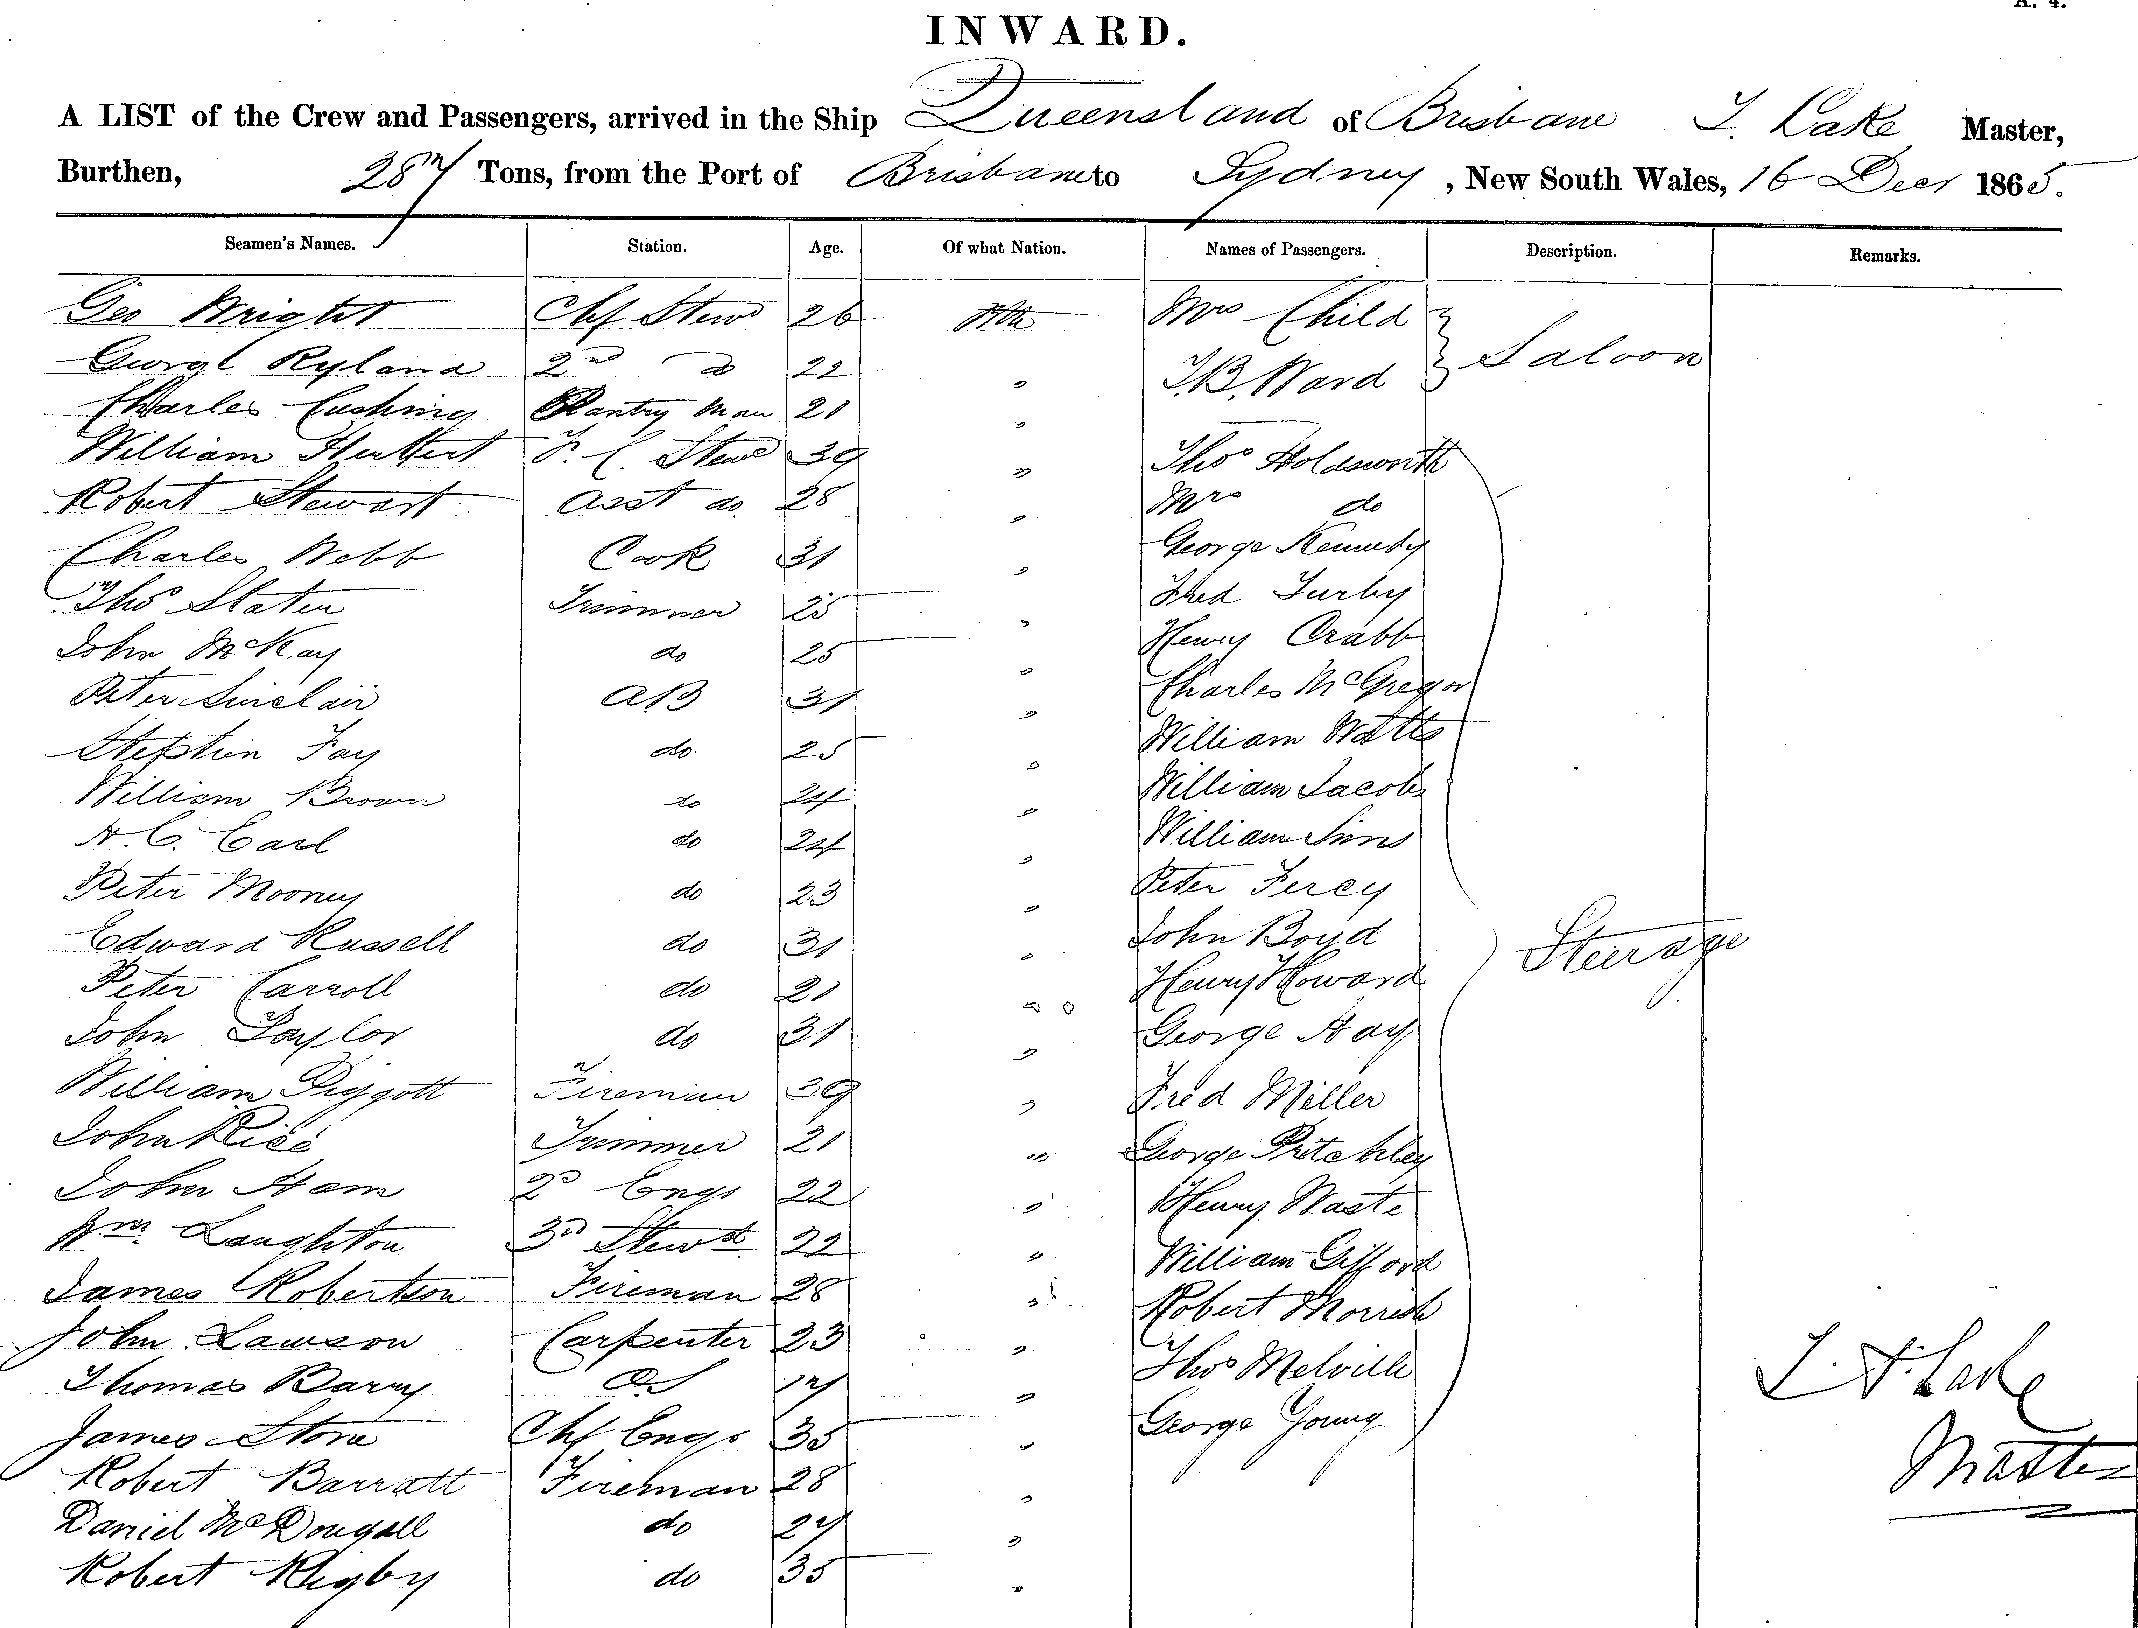 A. 4.
INWARD.
A LIST of the Crew and Passengers, arrived in the Ship Queensland of Brisbane T. Lake Master,
Burthen, 287 Tons, from the Port of Brisbane to Sydney, New South Wales, 16 Decr 1865.
Seamen's Names. Station. Age. Of what Nation. Names of Passengers. Description. Remarks.
Geo Wright Chf Stewd 26 Mrs Child
George Ryland 2nd do 22 " T.B. Ward Saloon
Charles Cushing Pantry man 21 "
William Herbert F. C. Stewd 39 " Thos Holdsworth
Robert Stewart Asst do. 28 " Mrs do
Charles Webb Cook 31 " George Kennedy
Thos Slater Trimmer 25 " Fred Furby
John McKay do 25 " Henry Crabb
Peter Sinclair AB 31 " Charles McGregor
Stephen Fay do 25 " William Watts
William Brown do 24 " William Jacobs
A. C. Carl do 24 " William Sims
Peter Mooney do 23 " Peter Fercy
Edward Russell do 31 " John Boyd
Peter Carroll do 21 " Henry Howard Steerage
John Taylor do 31 " George Hay
William Piggott Fireman 39 " Fred Miller
John Rice Trimmer 21 " George Pritchley
John Ham 2d Engr 22 " Henry Waste
Wm. Laughton 3d Stewd 22 " William Gifford
James Robertson Fireman 28 " Robert Morrish
John Lawson Carpenter 23 " Thos Melville
Thomas Barry OS 17 " George Young
James Stone Chf Engr 35 "
Robert Barratt Fireman 28 "
Daniel McDougall do 27 "
Robert Rigby do 35 "
T. A. Lake
Master